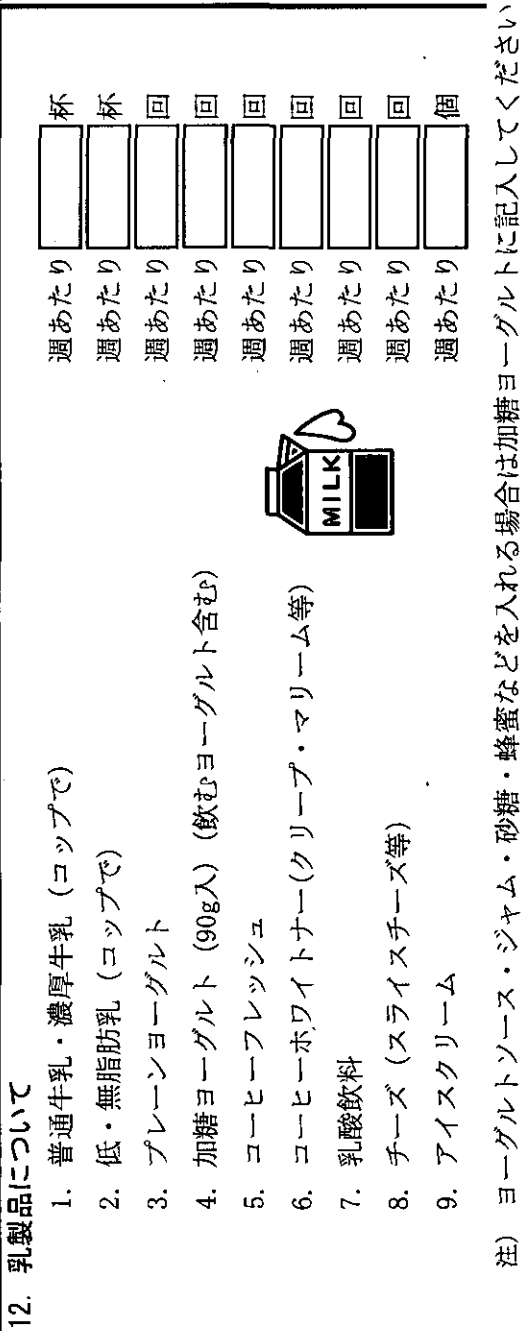 12. 乳製品について
1. 普通牛乳・濃厚牛乳（コップで） 週あたり 杯
2. 低・無脂肪乳（コップで） 週あたり 杯
3. プレーンヨーグルト 週あたり 回
4. 加糖ヨーグルト（90g入）（飲むヨーグルト含む） 週あたり 回
5. コーヒーフレッシュ 週あたり 回
6. コーヒーホワイトナー（クリープ・マリーム等） 週あたり 回
7. 乳酸飲料 週あたり 回
8. チーズ（スライスチーズ等） 週あたり 回
9. アイスクリーム 週あたり 個
MILK
注） ヨーグルトソース・ジャム・砂糖・蜂蜜などを入れる場合は加糖ヨーグルトに記入してください